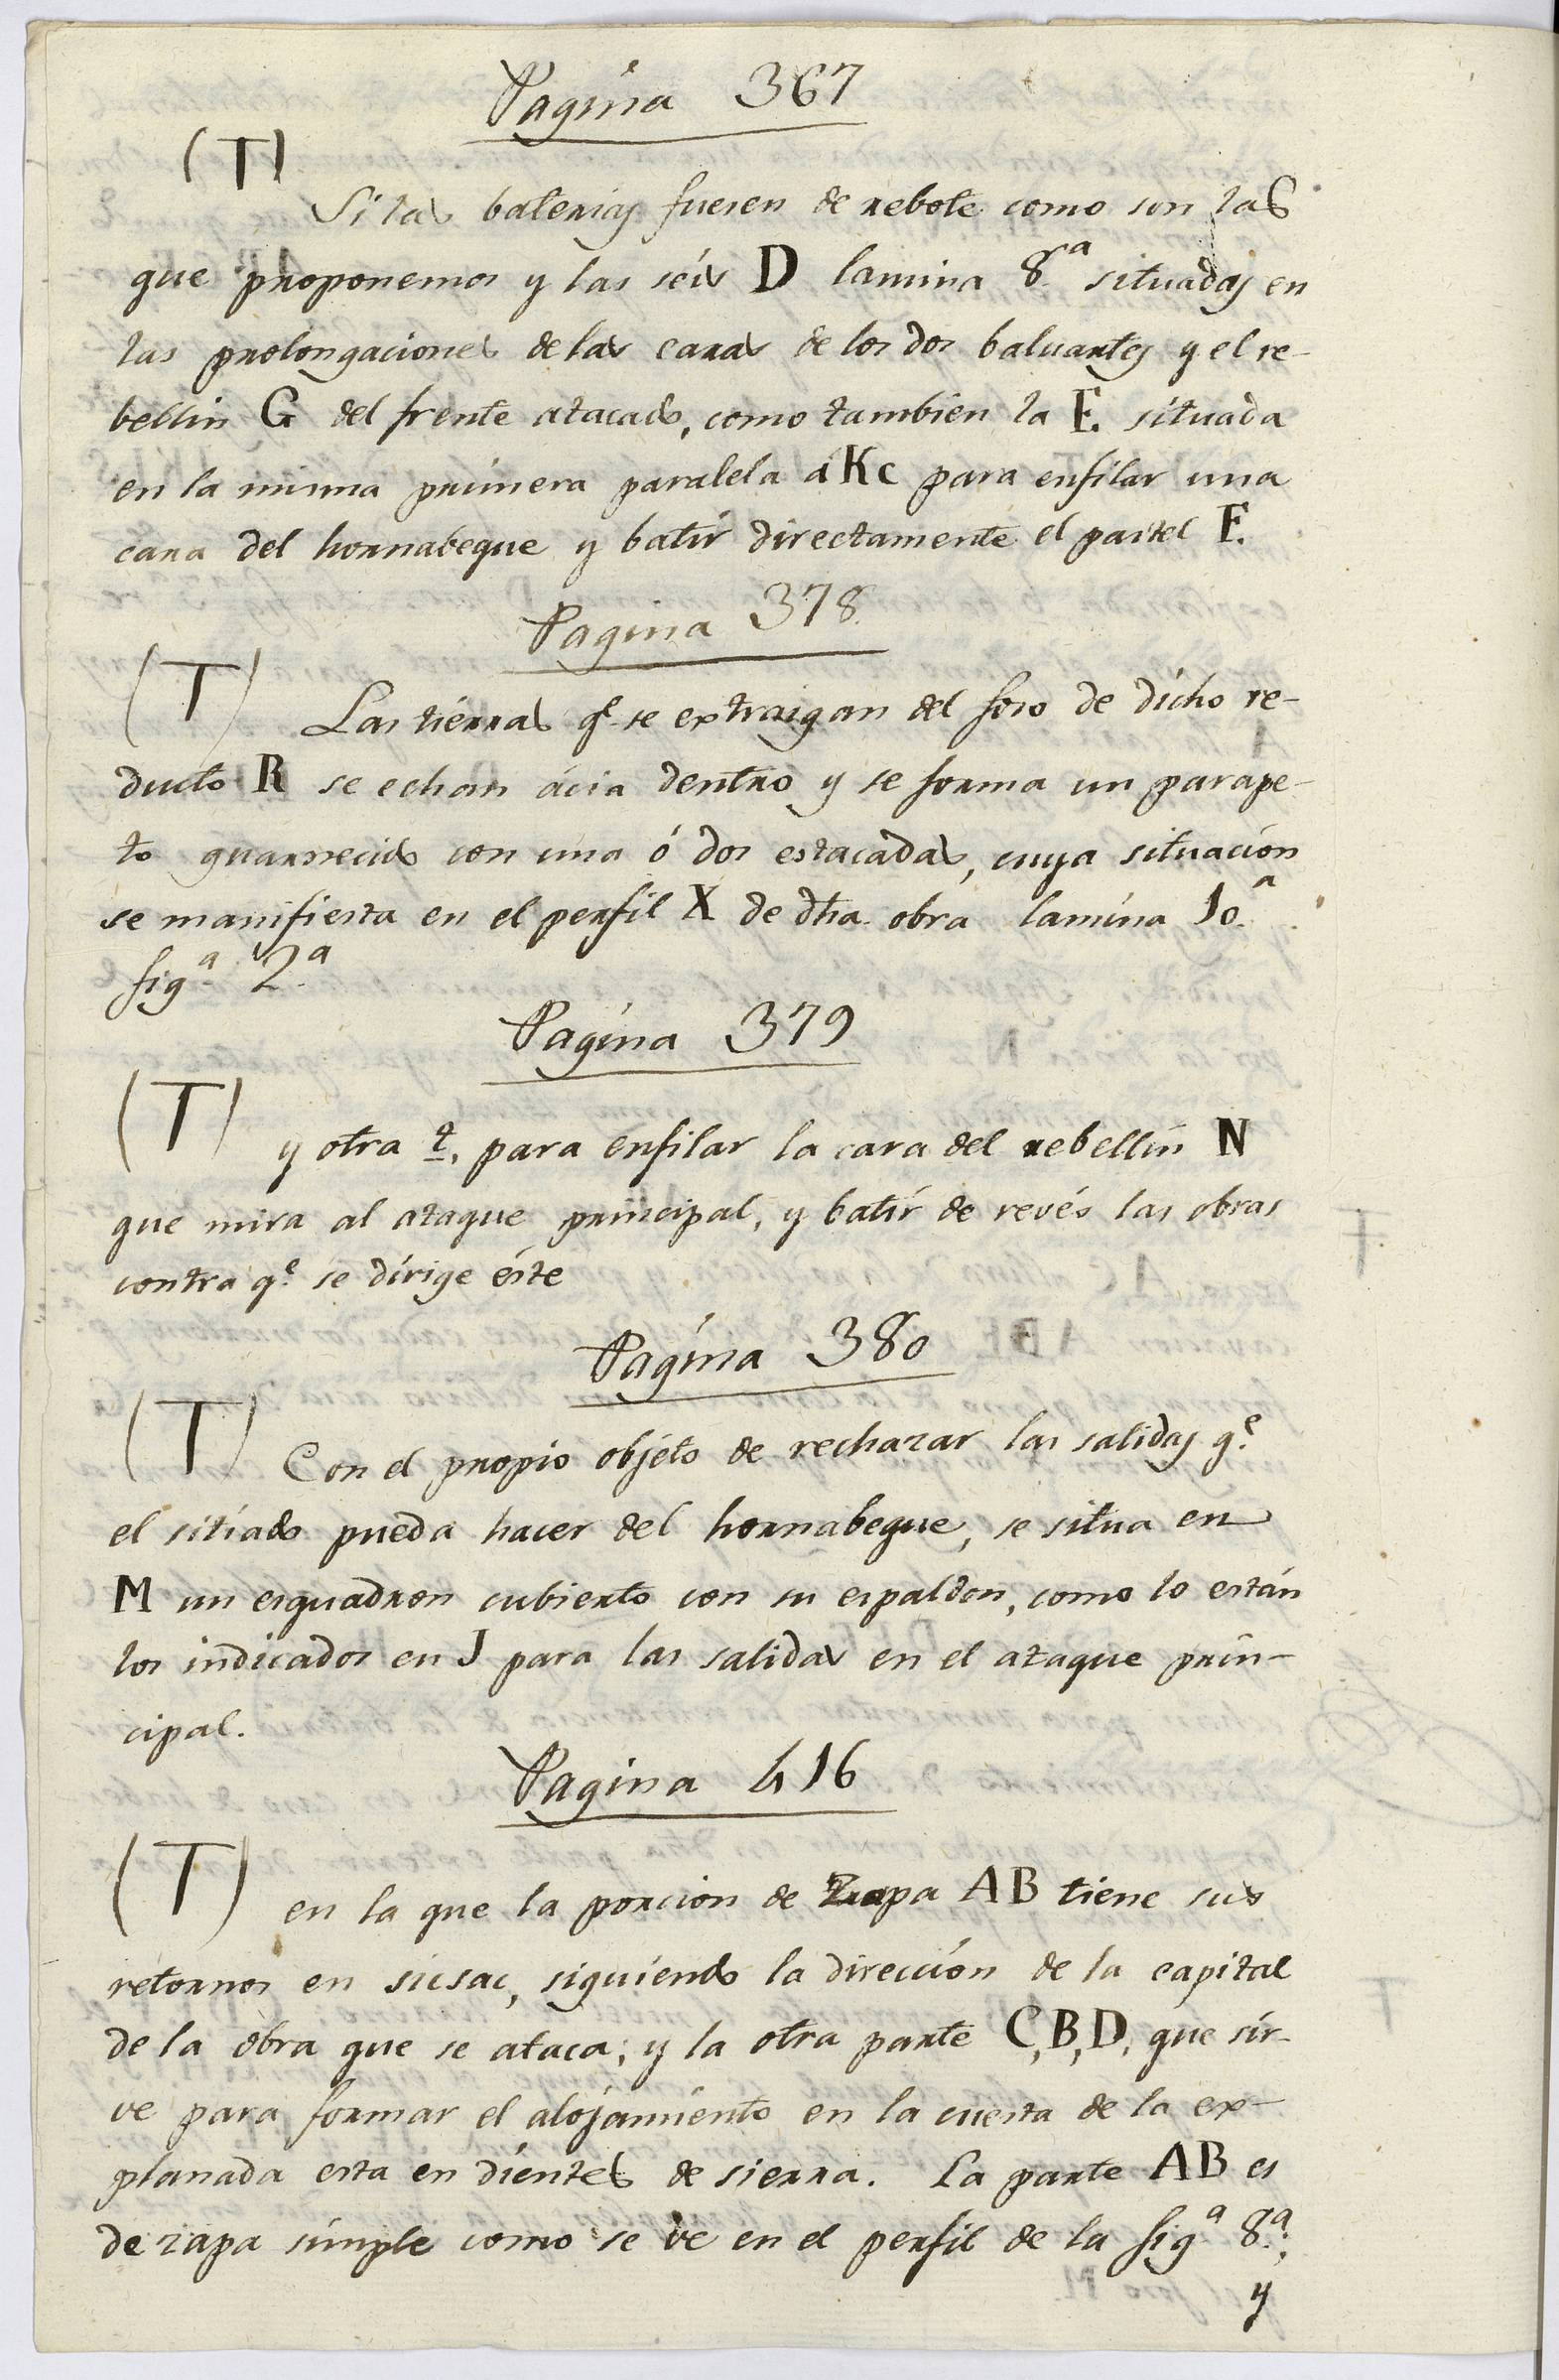 Pagina 367
(T)
Si las baterias fuesen de rebote como son las
que proponemos y las séis D lamina 8.ª situadas en
las prolongaciones de las caras de los dos baluartes y el re-
bellin G del frente atacado, como tambien la E. situada
en la misma primera paralela á Kc para enfilar una
cara del hornabeque y batir directamente el pastel F.
Pagina 378.
(T) Las tierras q.e se extraigan del foso de dicho re-
ducto R se echan ácia dentro y se forma un parape-
to guarnecido con una ó dos estacadas, cuya situación
se manifiesta en el perfil X de dha. obra lamina 10.ª
fig.ª 2.ª
Pagina 379
(T) y otra t, para enfilar la cara del rebellin N
que mira al ataque principal, y batir de revés las obras
contra q.e se dirige éste
Pagina 380
(T) Con el propio objeto de rechazar las salidas q.e
el sitiado pueda hacer del hornabeque, se situa en
M un esquadron cubierto con su espaldon, como lo están
los indicados en J para las salidas en el ataque prin-
cipal.
Pagina 416
(T) en la que la porcion de Zapa AB tiene sus
retornos en sicsac, siguiendo la dirección de la capital
de la obra que se ataca; y la otra parte C,B,D, que sir-
ve para formar el alojamiento en la cuesta de la ex-
planada esta en dientes de sierra. La parte AB es
de zapa simple como se ve en el perfil de la fig.ª 8.ª;
y